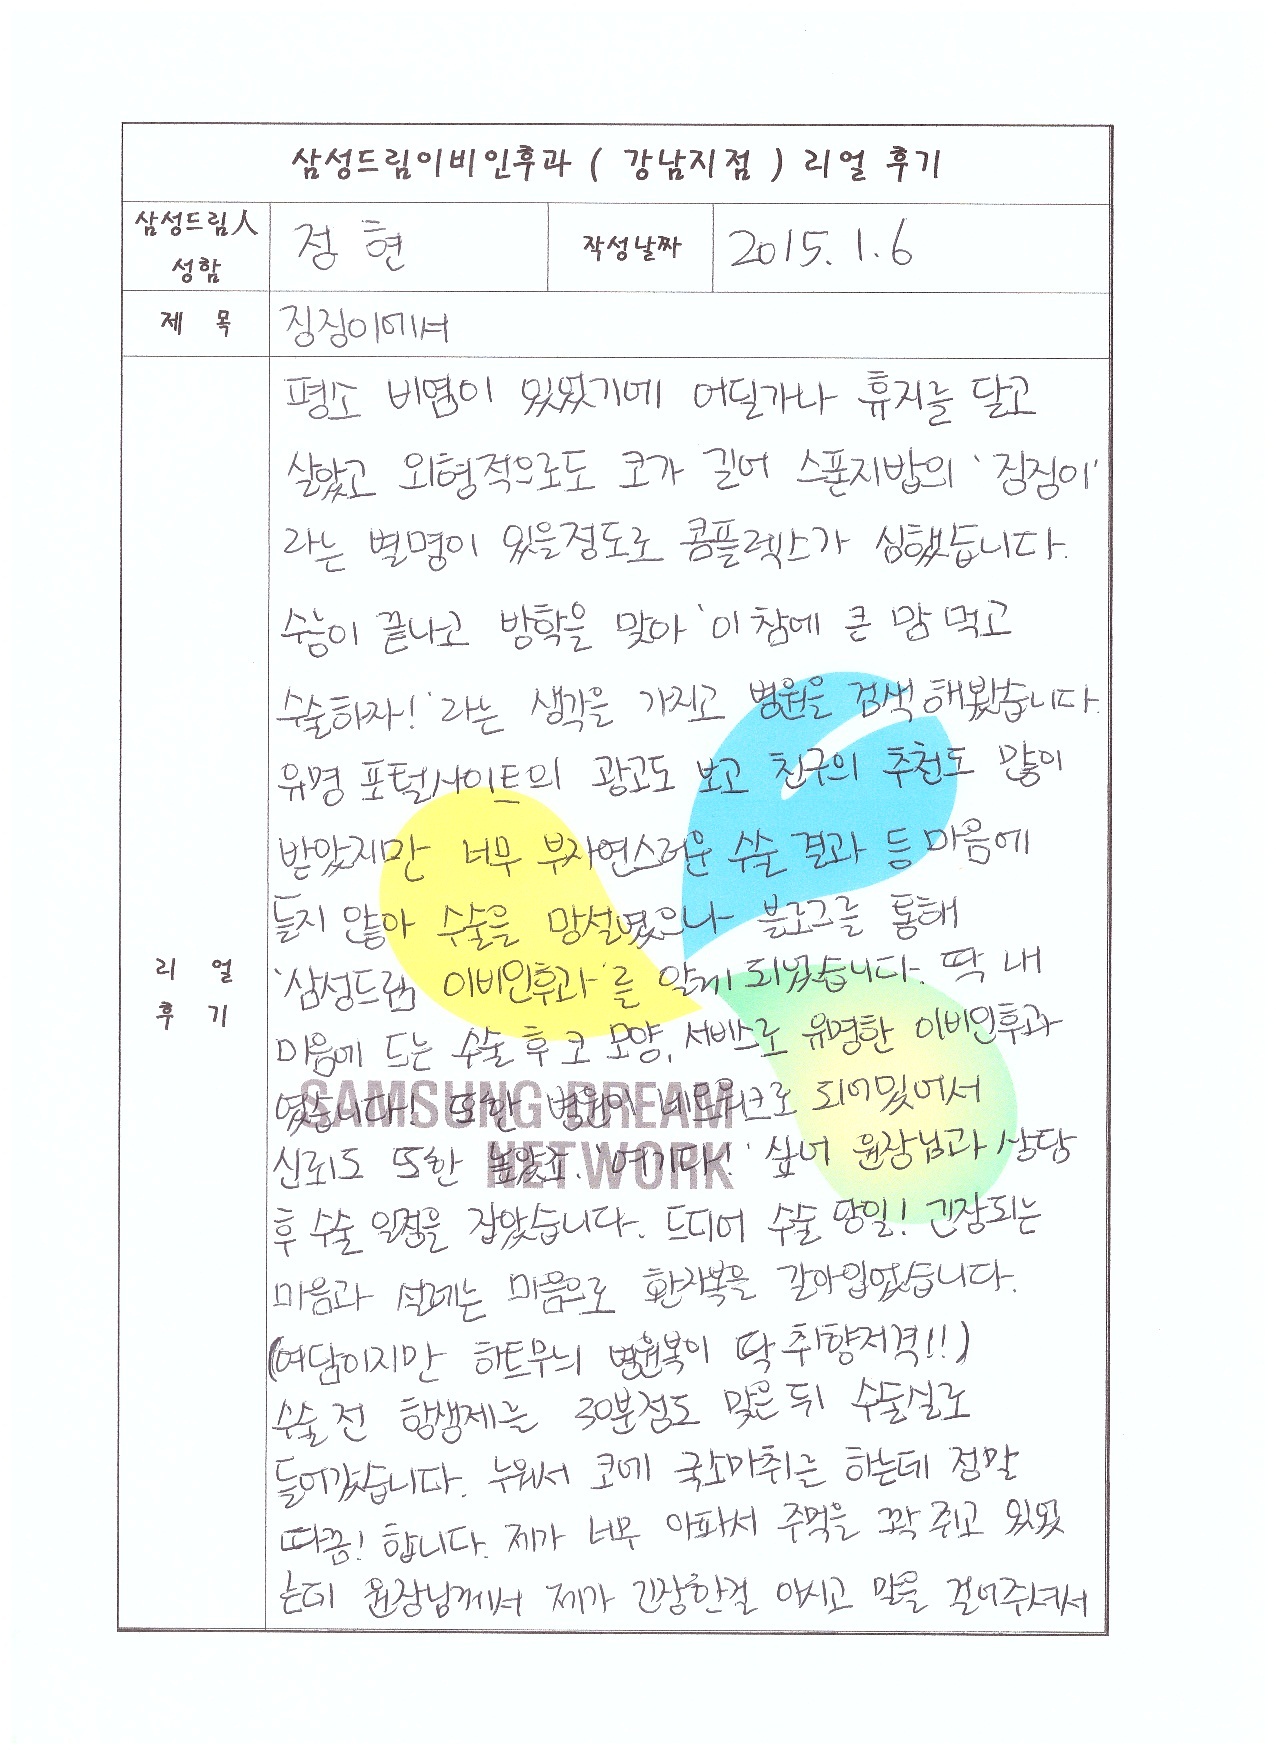 삼성드림이비인후과 ( 강남지점 ) 리얼 후기
삼성드림人 성함
정 현
작성날짜
2015. 1. 6
제 목
징징이에서
리 얼 후 기
평소 비염이 있었기에 어딜가나 휴지를 달고
살았고 외형적으로도 코가 길어 스폰지밥의 '징징이'
라는 별명이 있을정도로 콤플렉스가 심했습니다.
수능이 끝나고 방학을 맞아 '이참에 큰 맘 먹고
수술하자!' 라는 생각을 가지고 병원을 검색해봤습니다.
유명 포털사이트의 광고도 보고 친구의 추천도 많이
받았지만 너무 부자연스러운 수술 결과 등 마음에
들지 않아 수술을 망설였으나 블로그를 통해
'삼성드림 이비인후과'를 알게 되었습니다. 딱 내
마음에 드는 수술 후 코 모양, 서비스로 유명한 이비인후과
였습니다! 또한 병원이 네트워크로 되어있어서
신뢰도 또한 높았죠. '여기다!' 싶어 원장님과 상담
후 수술 일정을 잡았습니다. 드디어 수술 당일! 긴장되는
마음과 설레는 마음으로 환자복을 갈아입었습니다.
(여담이지만 하트무늬 병원복이 딱 취향저격!!)
수술 전 항생제는 30분정도 맞은 뒤 수술실로
들어갔습니다. 누워서 코에 국소마취를 하는데 정말
따끔! 합니다. 제가 너무 아파서 주먹을 꽉 쥐고 있었
는데 원장님께서 제가 긴장한걸 아시고 말을 걸어주셔서
SAMSUNG DREAM
NETWORK